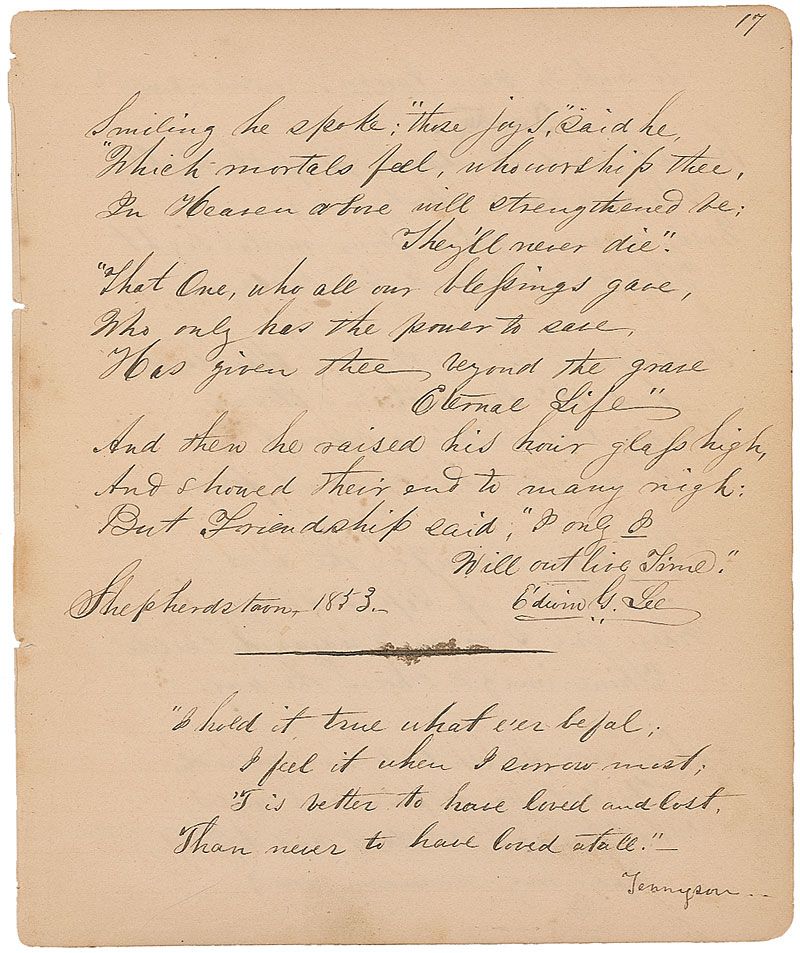 17
Smiling he spoke; "those joys," said he,
"Which mortals feel, who worship thee,
In Heaven above will strengthened be;
They'll never die".
"That One, who all our blessings gave,
Who only has the power to save,
Has given thee, beyond the grave
Eternal Life"
And then he raised his hour glass high,
And showed their end to many nigh:
But Friendship said, "I only I
Will out live Time."
Shepherdstown, 1853.
Edwin G. Lee
"I hold it true what e'er befal;
I feel it when I sorrow most;
'T is better to have loved and lost,
Than never to have loved at all."
Tennyson